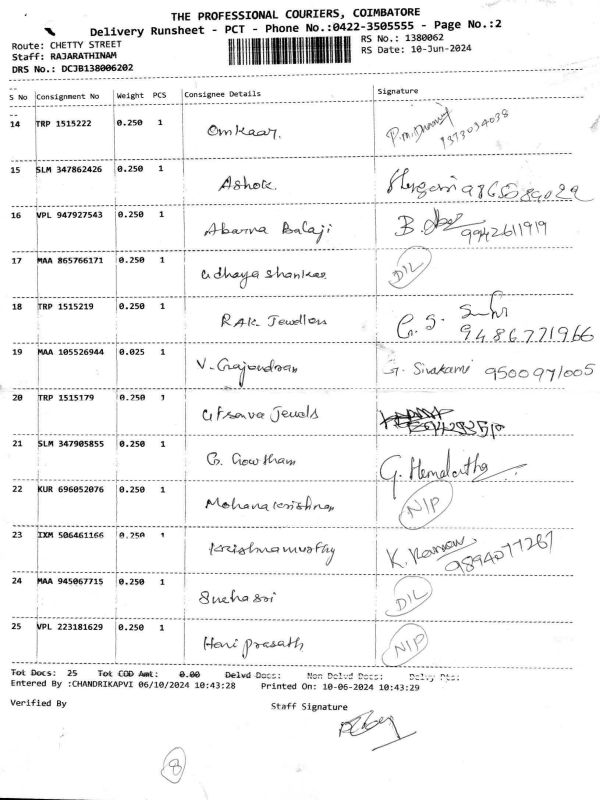 THE PROFESSIONAL COURIERS, COIMBATORE
Delivery Runsheet - PCT - Phone No.:0422-3505555 - Page No.:2
Route: CHETTY STREET RS No.: 1380062
Staff: RAJARATHINAM RS Date: 10-Jun-2024
DRS No.: DCJB138006202
S No Consignment No Weight PCS Consignee Details Signature
14 TRP 1515222 0.250 1 Omkaar.
15 SLM 347862426 0.250 1 Ashok.
16 VPL 947927543 0.250 1 Abarna Balaji B. 9942611919
17 MAA 865766171 0.250 1 Udhaya Shankar D/L
18 TRP 1515219 0.250 1 RAK Jewellers G. S. 9486771966
19 MAA 105526944 0.025 1 V. Gajendran G. Sivakami 9500971005
20 TRP 1515179 0.250 1 Jewels
21 SLM 347905855 0.250 1 G. Gowtham G. Hemalatha
22 KUR 696052076 0.250 1 Mohana Krishnan N/P
23 IXM 506461166 0.250 1 Krishnamurthy K. Raman 9894077267
24 MAA 945067715 0.250 1 Sneha Sri D/L
25 VPL 223181629 0.250 1 Hari Prasath N/P
Tot Docs: 25 Tot COD Amt: 0.00 Delvd Docs: Non Delvd Docs: Delvy Pts:
Entered By :CHANDRIKAPVI 06/10/2024 10:43:28 Printed On: 10-06-2024 10:43:29
Verified By Staff Signature
8